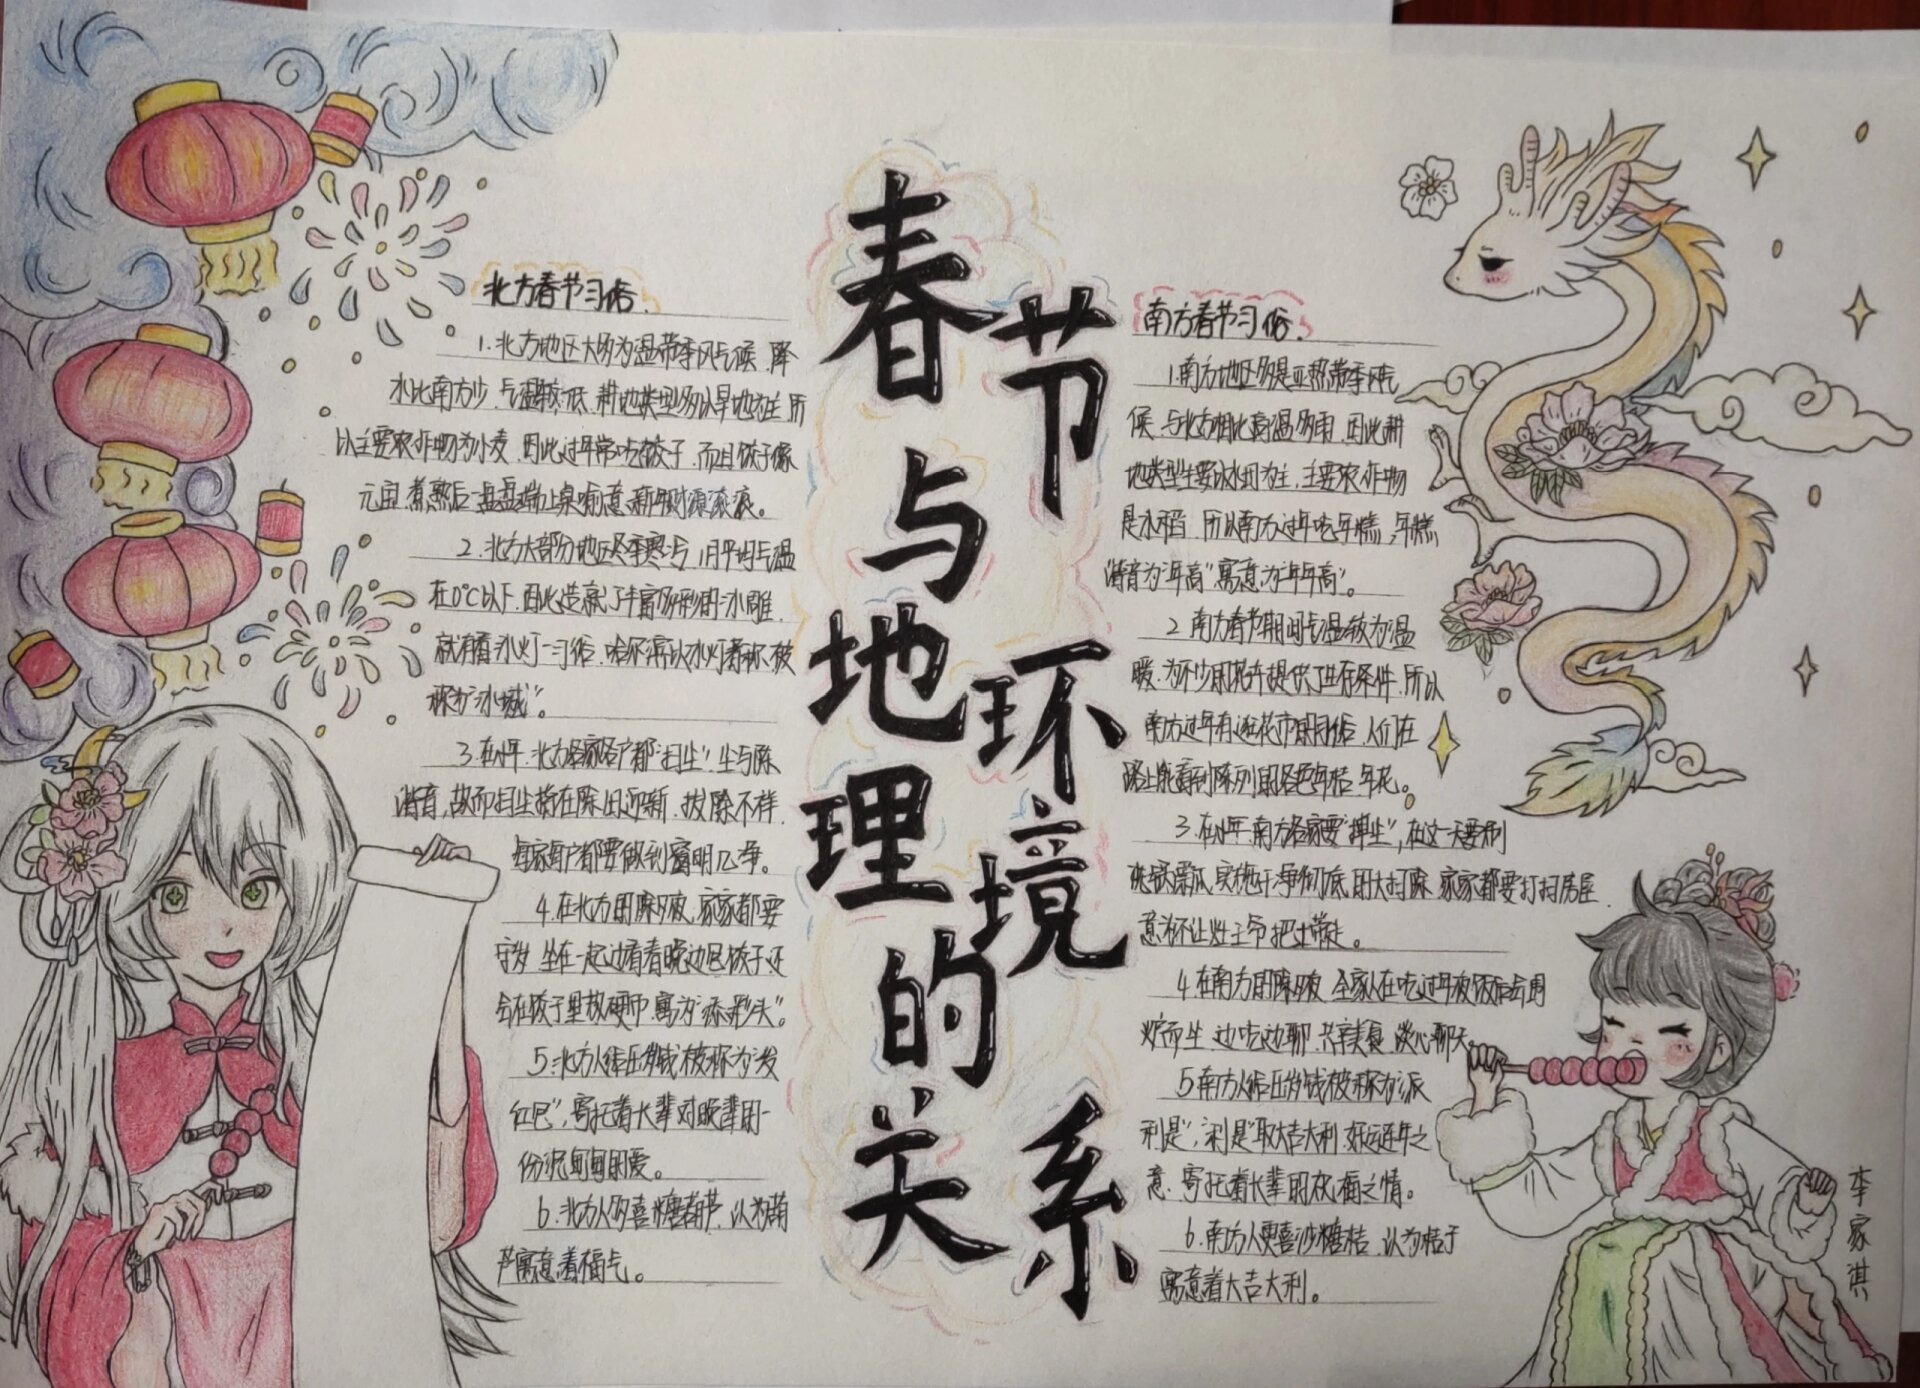 春节与地理环境的关系
北方春节习俗
1.北方地区大多为温带季风气候,降
水比南方少,气温较低,耕地类型多以旱地为主,所
以主要农作物为小麦,因此过年常吃饺子,而且饺子像
元宝,煮熟后一盘盘端上桌喻意新年财源滚滚。
2.北方大部分地区冬季寒冷,1月平均气温
在0℃以下,因此造就了丰富多彩的冰雕,
就有看冰灯一习俗,哈尔滨以冰灯著称,被
称为“冰城”。
3.在小年,北方各家各户都“扫尘”,尘与陈
谐音,故而扫尘指在除旧迎新,拔除不祥,
每家每户都要做到窗明几净。
4.在北方的除夕夜,家家都要
守岁,坐在一起边看春晚边包饺子还
会在饺子里放硬币,寓为“添彩头”。
5.北方人给压岁钱被称为“发
红包”,寄托着长辈对晚辈的一
份沉甸甸的爱。
6.北方人多喜糖葫芦,认为葫
芦寓意着福气。
南方春节习俗
1.南方地区多是亚热带季风气
候,与北方相比高温多雨,因此耕
地类型主要以水田为主,主要农作物
是水稻,所以南方过年吃年糕,年糕
谐音为“年高”寓意为“年年高”。
2.南方春节期间气温较为温
暖,为不少的花卉提供了生存条件,所以
南方过年有逛花市的习俗,人们在
路上能看到陈列的各色年桔,年花。
3.在小年,南方各家要“掸尘”,在这一天要刷
洗锅瓢瓜,实施干净彻底的大扫除,家家都要打扫房屋,
意为不让灶王爷把土带走。
4.在南方的除夕夜,全家人在吃过年夜饭后会围
炉而坐,边吃边聊,共享美食,谈心聊天。
5.南方人给压岁钱被称为“派
利是”,“利是”取大吉大利,好运连年之
意,寄托着长辈的祝福之情。
6.南方人更喜沙糖桔,认为桔子
寓意着大吉大利。
李家淇